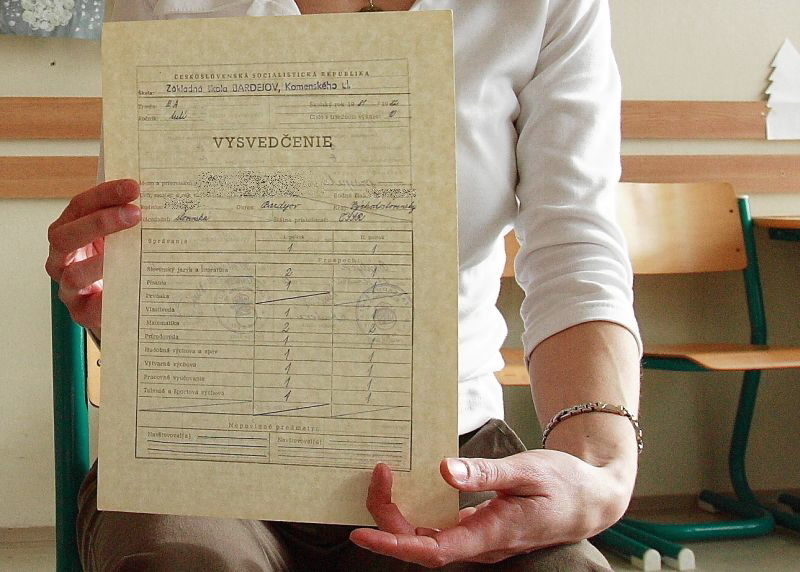 ČESKOSLOVENSKÁ SOCIALISTICKÁ REPUBLIKA
Škola: Základná škola BARDEJOV, Komenského ul.
Trieda:
Ročník: Školský rok 19
Číslo v triednom výkaze:
VYSVEDČENIE
Meno a priezvisko:
Rodné číslo
Okres: Bardejov Kraj: Východoslovenský
Národnosť: slovenská Štátna príslušnosť: ČSSR
I. polrok II. polrok
Správanie 1 1
Prospech:
Slovenský jazyk a literatúra 2 1
Písanie 1 1
Prvouka
Vlastiveda 1 1
Matematika 2 2
Prírodoveda 1 1
Hudobná výchova a spev 1 1
Výtvarná výchova 1 1
Pracovné vyučovanie 1 1
Telesná a športová výchova 1 1
Nepovinné predmety
Navštevoval(a) Navštevoval(a)